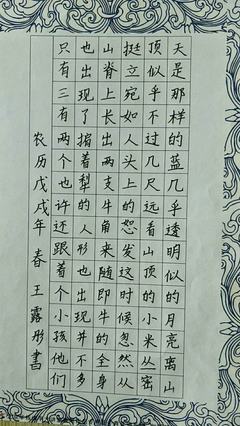 天是那样的蓝几乎透明似的月亮离山
顶似乎不过几尺远看山顶的小米丛密
挺立宛如人头上怒发这时候忽然从
山脊上长出两支牛角来随即牛的全身
也出现了掮着犁的人形也出现并不多
只有三有两个也许还跟着个小孩他们
农历戊戌年春 王露彤書